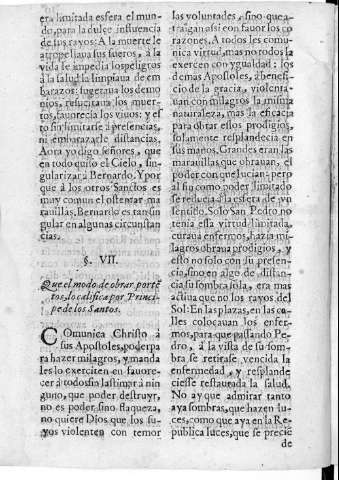 era limitada esfera el mun-
do, para la dulce influencia
de sus rayos: A la muerte le
atropellaua sus fueros, a la
vida se impedia los peligros
à la salud la limpiaua de em
barazos: sugeraua los demo
nios, resucitaua los muer-
tos, fauorecia los viuos: y es
to sin limitarle à presencias,
ni embarazarle distancias.
Aora yo digo señores, que
en todo quiso el Cielo, sin-
gularizar à Bernardo. Y por
que à los otros Sanctos es
muy comun el ostentar ma
rauillas, Bernardo es tan sin
gular en algunas circunstan
cias.
§. VII.
Que el modo de obrar porte-
tos, lo califica por Princi-
pe de los Santos.
COmunica Christo à
sus Apostoles, poder pa
ra hazer milagros, y manda
les lo exerciten en fauore-
cer à todos sin lastimar à nin
guno, que poder destruyr,
no es poder sino flaqueza,
no quiere Dios que los su-
yos violenten con temor
las voluntades, sino que a-
traigan assi con fauor los co
razones. A todos les comu-
nica virtud, mas no todos la
exercen con ygualdad: los
demas Apostoles, à benefi-
cio de la gracia, violenta-
uan con milagros la misma
naturaleza, mas la eficacia
para obrar estos prodigios,
solamente resplandecia en
sus manos. Grandes eran las
marauillas que obrauan, el
poder con que lucian pero
al fin como poder limitado
se reducia à la esfera de vn
sentido. Solo San Pedro no
tenia esta virtud limitada,
curaua enfermos, hazia mi-
lagros obraua prodigios, y
esto no solo con su presen-
cia, sino en algo de distan-
cia su sombra sola, era mas
actiua que no los rayos del
Sol: En las plazas, en las ca-
lles colocauan los enfer-
mos, para que passando Pe-
dro, à la vista de su som-
bra se retirase vencida la
enfermedad, y resplande
ciesse restaurada la salud.
No ay que admirar tanto
aya sombras, que hazen lu-
ces, como que aya en la Re-
publica luces, que se precie
de